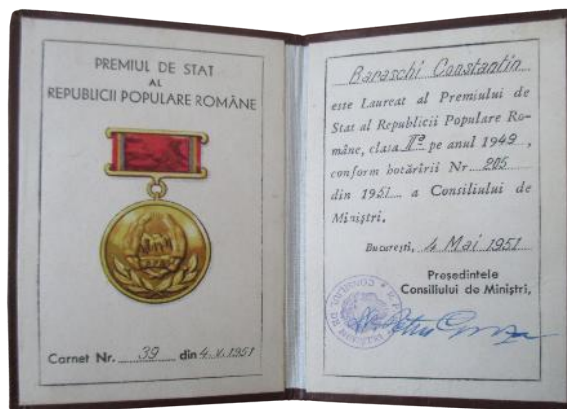 PREMIUL DE STAT
AL
REPUBLICII POPULARE ROMÂNE
Carnet Nr. 39 din 4.V.1951
Baraschi Constantin
este Laureat al Premiului de
Stat al Republicii Populare Ro-
mâne, clasa IIa pe anul 1949,
conform hotărîrii Nr. 205
din 1951 a Consiliului de
Miniștri.
București, 4 Mai 1951
Președintele
Consiliului de Miniștri,